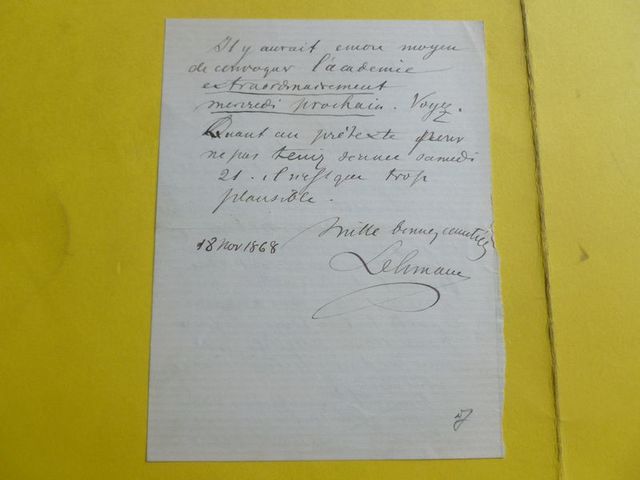 Il y aurait encore moyen
de convoquer l'académie
extraordinairement
mercredi prochain. Voyez.
Quant au prétexte pour
ne pas tenir séance samedi
21. il n'est que trop
plausible.
Mille bonnes amitiés
18 Nov 1868
Lehmann